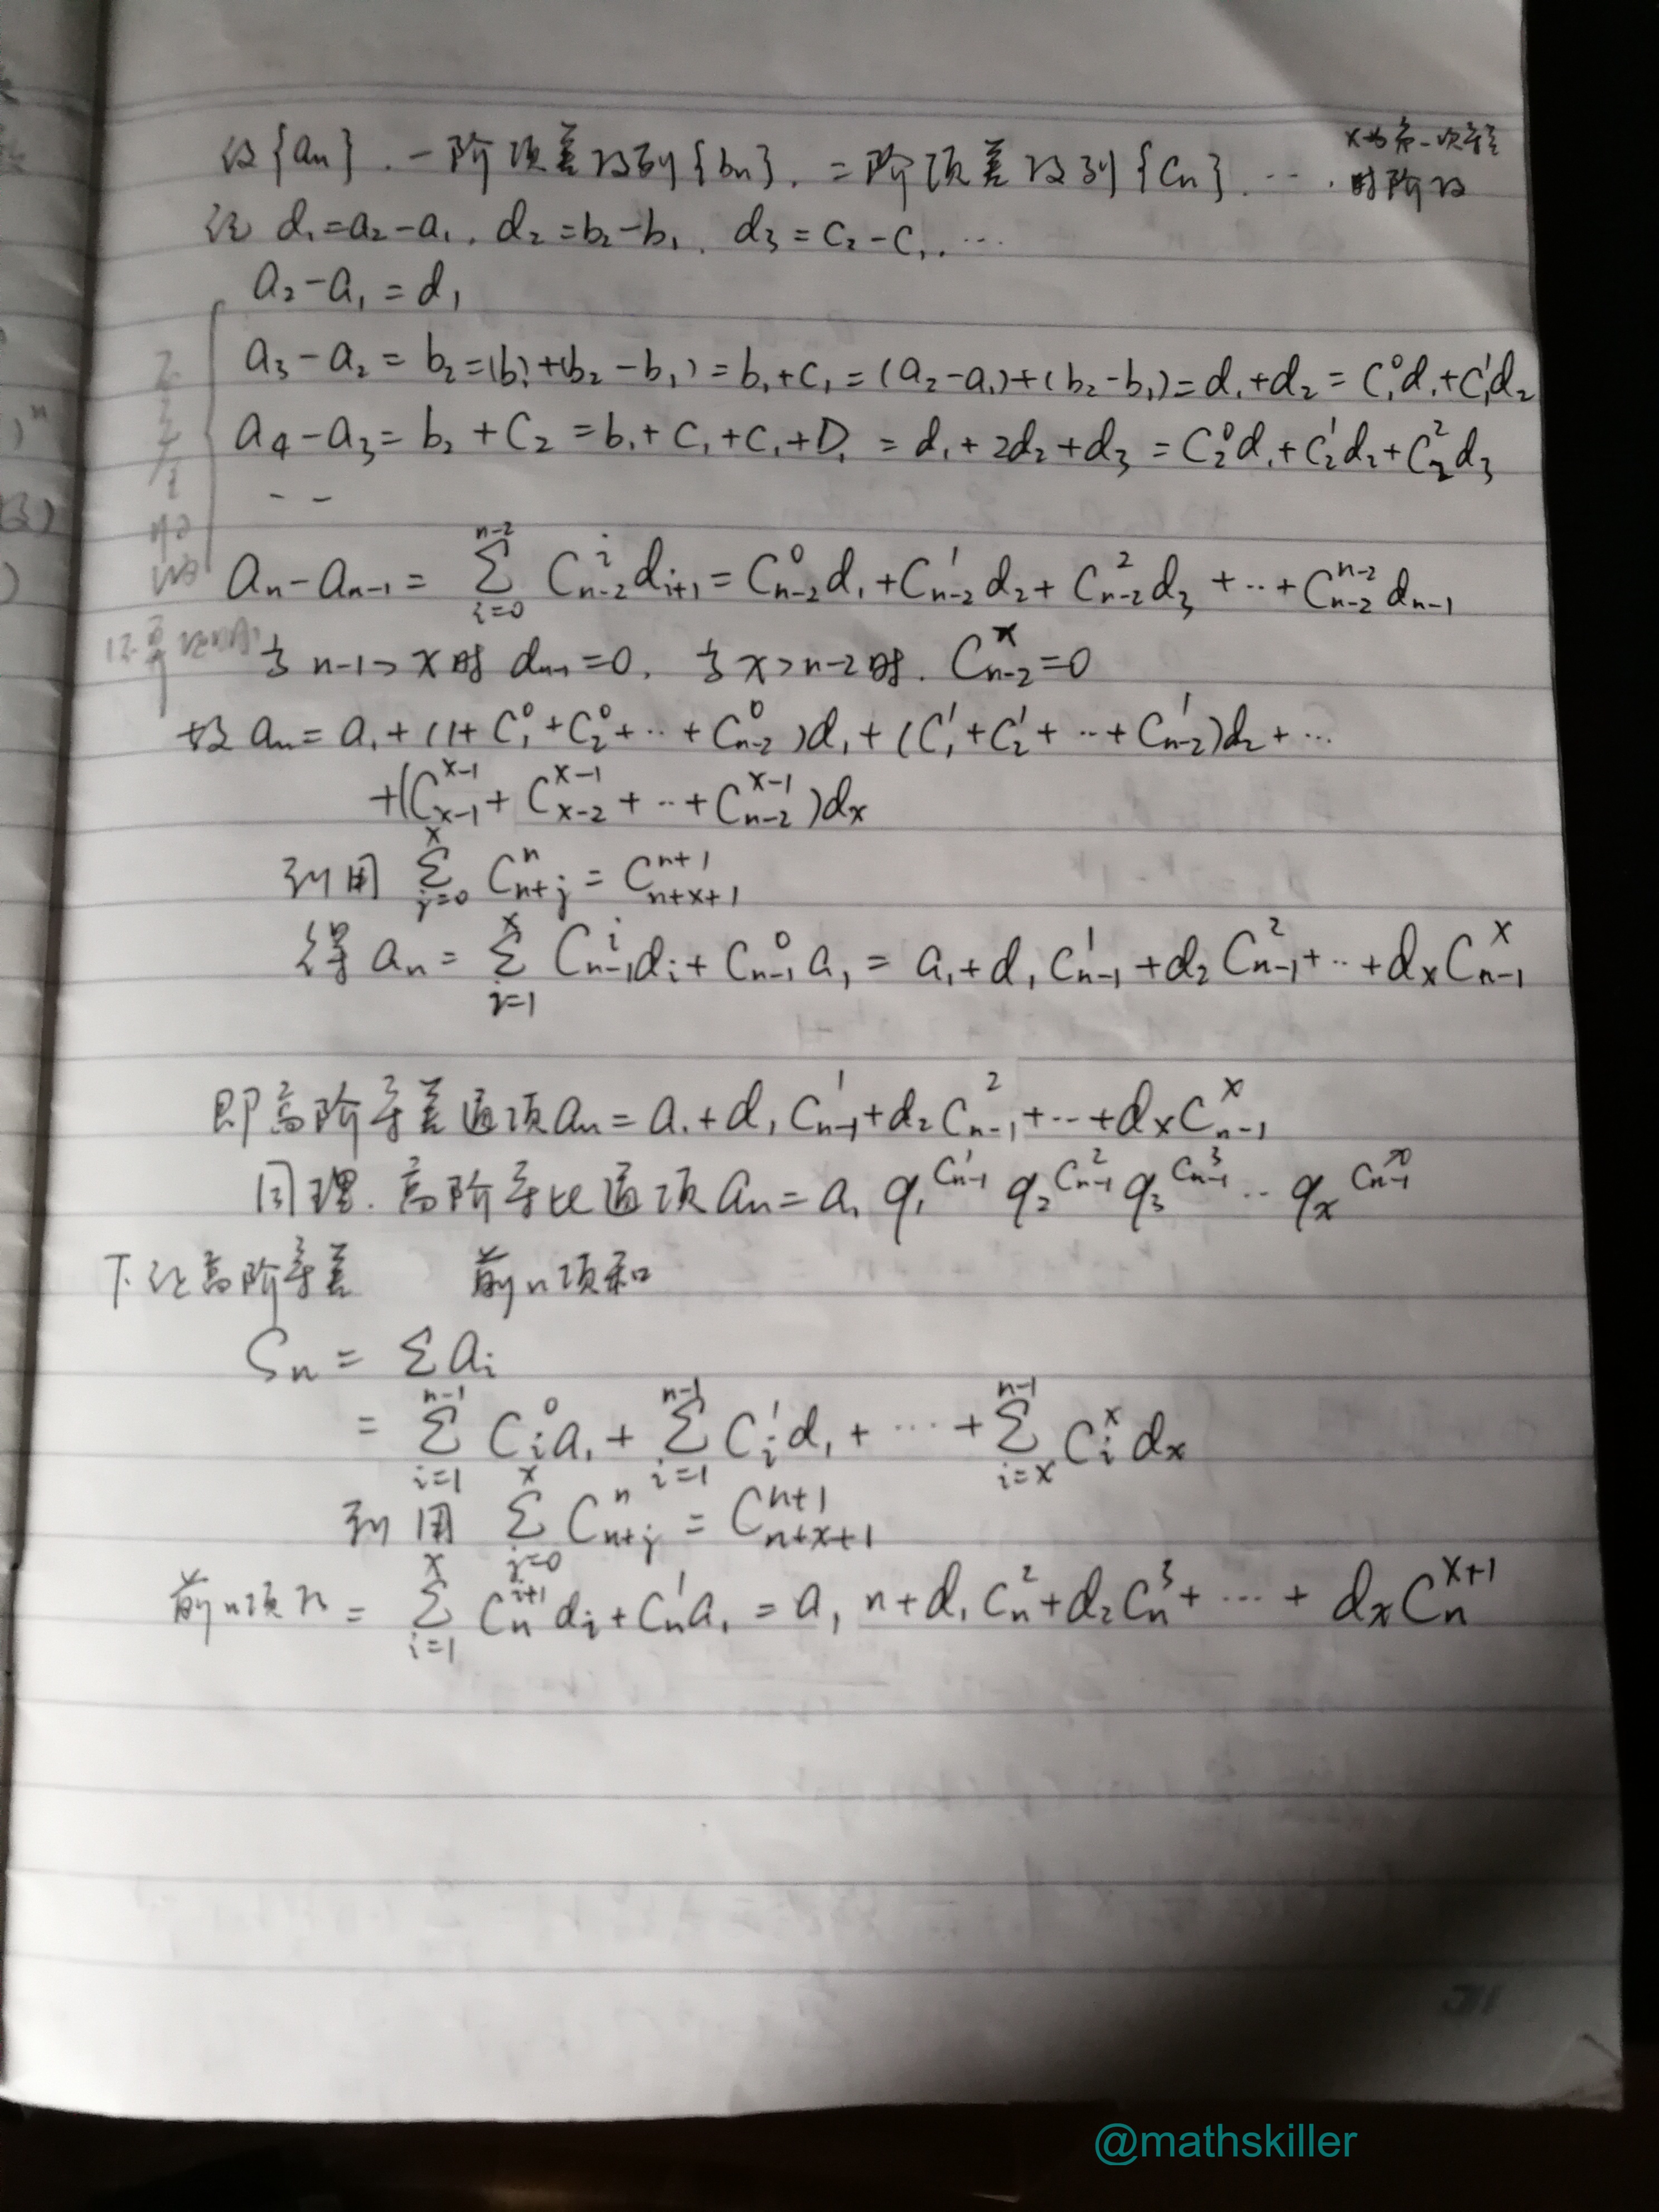 设{aₙ}.一阶项差数列{bₙ}.二阶项差数列{Cₙ}. … . x为第一次等差时阶数
记 d₁=a₂-a₁. d₂=b₂-b₁. d₃=C₂-C₁. …
a₂-a₁=d₁
a₃-a₂=b₂=(b₁)+(b₂-b₁)=b₁+C₁=(a₂-a₁)+(b₂-b₁)=d₁+d₂=C₁⁰d₁+C₁¹d₂
a₄-a₃=b₂+C₂=b₁+C₁+C₁+D₁=d₁+2d₂+d₃=C₂⁰d₁+C₂¹d₂+C₂²d₃
- -
a_n-a_{n-1}=\sum_{i=0}^{n-2}C_{n-2}^{i}d_{i+1}=C_{n-2}^{0}d_1+C_{n-2}^{1}d_2+C_{n-2}^{2}d_3+…+C_{n-2}^{n-2}d_{n-1}
当n-1>x时 d_{n-1}=0. 当x>n-2时. C_{n-2}^{x}=0
故a_n=a_1+(1+C_1^0+C_2^0+…+C_{n-2}^0)d_1+(C_1^1+C_2^1+…+C_{n-2}^1)d_2+…
+(C_{x-1}^{x-1}+C_{x-2}^{x-1}+…+C_{n-2}^{x-1})d_x
利用 \sum_{j=0}^{x}C_{n+j}^{n}=C_{n+x+1}^{n+1}
得a_n=\sum_{i=1}^{x}C_{n-1}^{i}d_i+C_{n-1}^{0}a_1=a_1+d_1C_{n-1}^{1}+d_2C_{n-1}^{2}+…+d_xC_{n-1}^{x}
即高阶等差通项a_n=a_1+d_1C_{n-1}^{1}+d_2C_{n-1}^{2}+…+d_xC_{n-1}^{x}
同理.高阶等比通项a_n=a_1 q_1^{C_{n-1}^{1}} q_2^{C_{n-1}^{2}} q_3^{C_{n-1}^{3}} … q_x^{C_{n-1}^{x}}
下记高阶等差 前n项和
S_n=\sum a_i
=\sum_{i=1}^{n-1}C_i^0a_1+\sum_{i=1}^{n-1}C_i^1d_1+…+\sum_{i=x}^{n-1}C_i^xd_x
利用 \sum_{j=0}^{x}C_{n+j}^{n}=C_{n+x+1}^{n+1}
前n项和=\sum_{i=1}^{x}C_n^{i+1}d_i+C_n^1a_1=a_1n+d_1C_n^2+d_2C_n^3+…+d_xC_n^{x+1}
@mathskiller